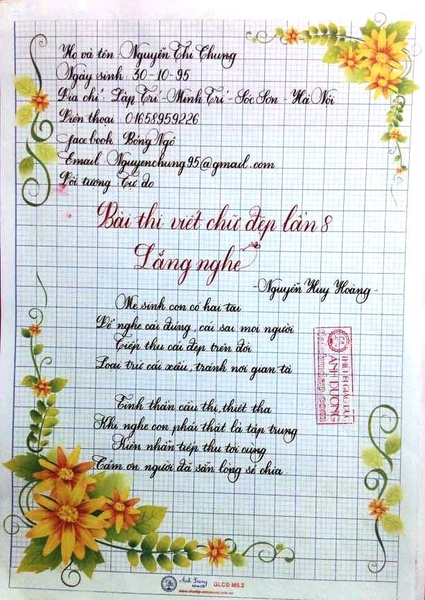 Họ và tên Nguyễn Thị Chung
Ngày sinh 30-10-95
Địa chỉ Lập Trí - Minh Trí - Sóc Sơn - Hà Nội
Điện thoại 01658959226
Facebook Bông Ngô
Email Nguyenchung95@gmail.com
Đối tượng Tự do
Bài thi viết chữ đẹp lần 8
Lắng nghe
- Nguyễn Huy Hoàng -
Mẹ sinh con có hai tai
Để nghe cái đúng, cái sai mọi người
Tiếp thu cái đẹp trên đời
Loại trừ cái xấu, tránh nơi gian tà
Tinh thần cầu thị, thiết tha
Khi nghe con phải thật là tập trung
Kiên nhẫn tiếp thu tới cùng
Cảm ơn người đã sẵn lòng sẻ chia
ÁNH DƯƠNG
Ánh Dương
GLCD M5.2